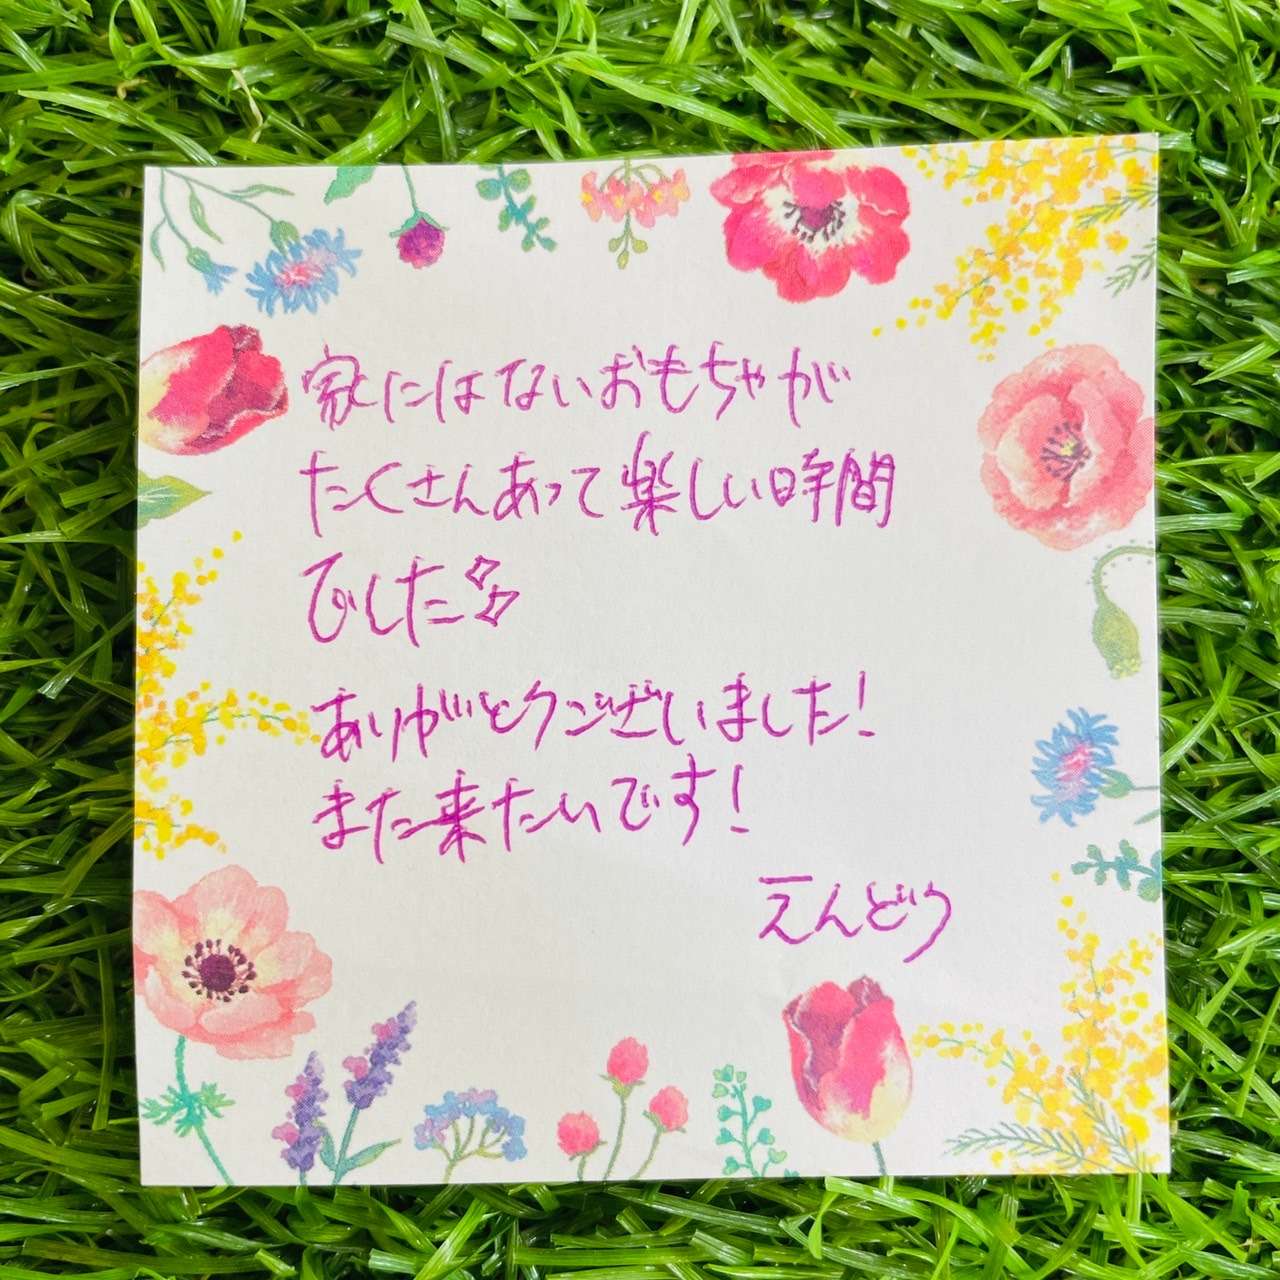 家にはないおもちゃが
たくさんあって楽しい時間
でした✨
ありがとうございました!
また来たいです!
えんどう